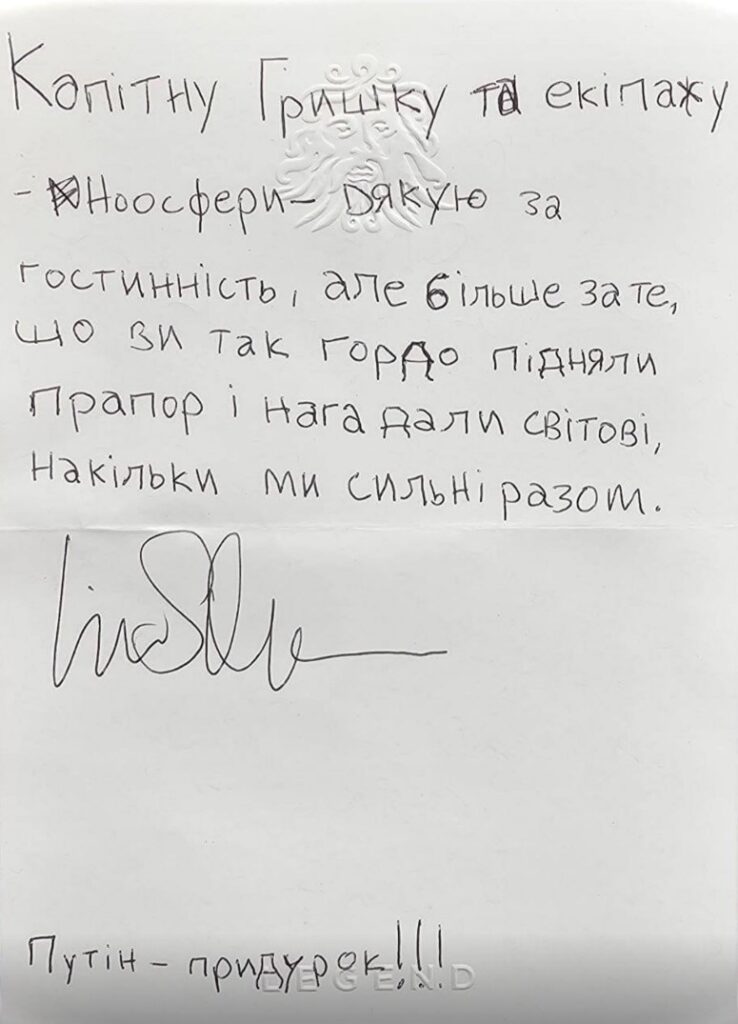 Капітну Гришку та екіпажу
- Ноосфери - дякую за
гостинність, але більше за те,
що ви так гордо підняли
прапор і нагадали світові,
накільки ми сильні разом.
Путін - придурок!!!
LEGEND